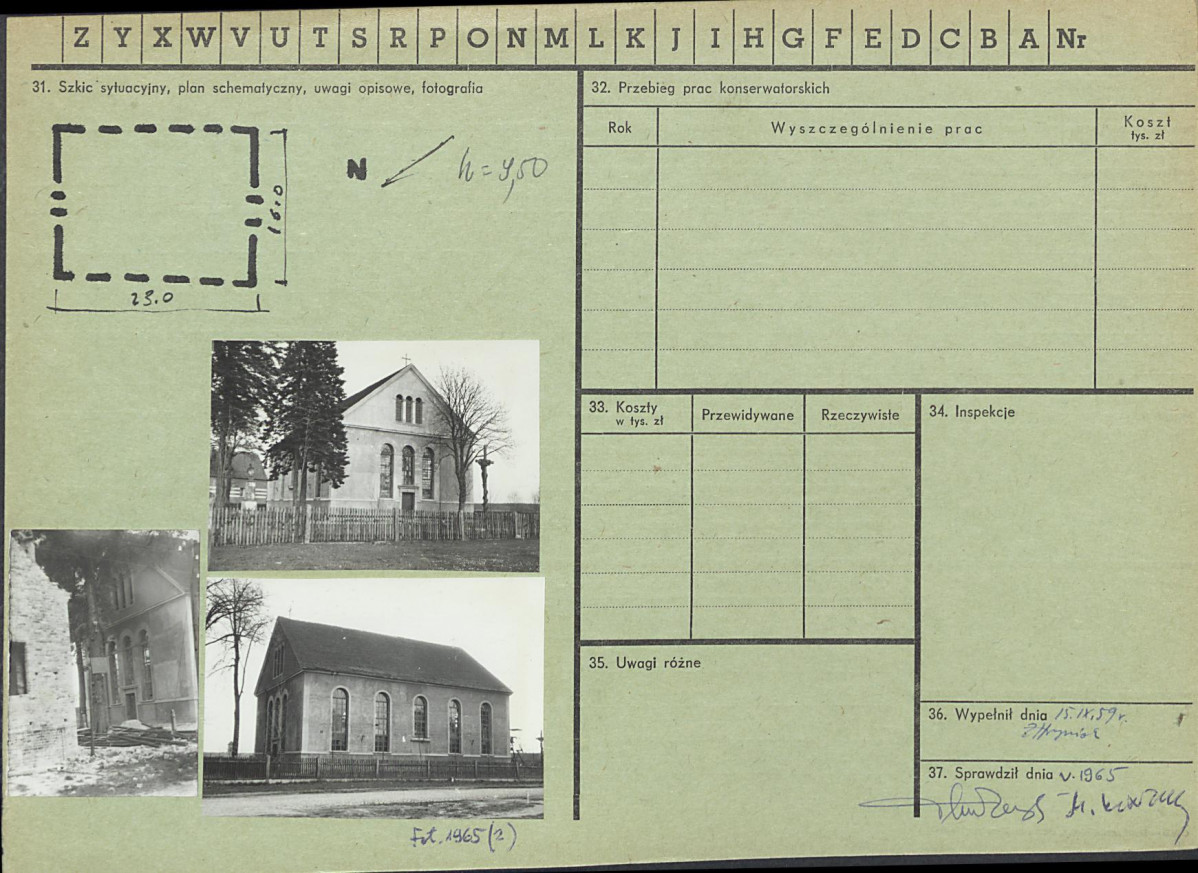 Z Y X W V U T S R P O N M L K J I H G F E D C B A Nr
31. Szkic sytuacyjny, plan schematyczny, uwagi opisowe, fotografia
N
h = 9,50
16.0
23.0
Fot. 1965 (2)
32. Przebieg prac konserwatorskich
Rok
Wyszczególnienie prac
Koszt
tys. zł
33. Koszty
w tys. zł
Przewidywane
Rzeczywiste
34. Inspekcje
35. Uwagi różne
36. Wypełnił dnia 15.IX.59r.
37. Sprawdził dnia V. 1965